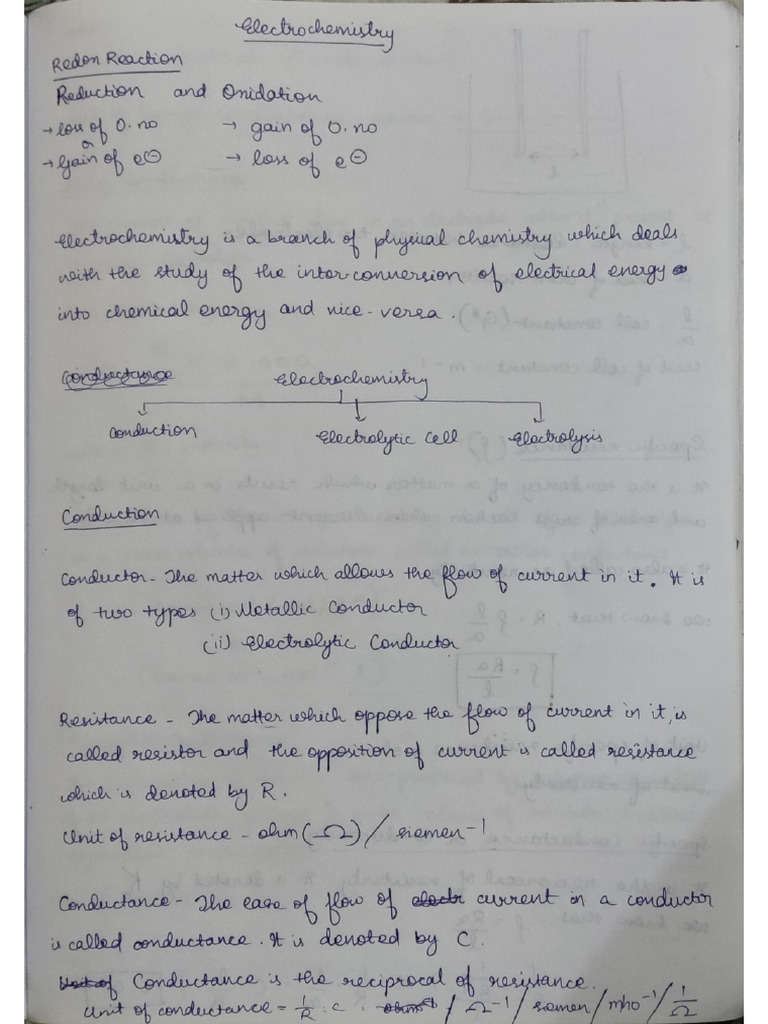 Electrochemistry
Redox Reaction
Reduction and Oxidation
→ loss of O. no → gain of O. no
or
→ Gain of e⊖ → loss of e⊖
Electrochemistry is a branch of physical chemistry which deals
with the study of the interconversion of electrical energy
into chemical energy and vice-versa.
Conductance Electrochemistry
Conduction Electrolytic Cell Electrolysis
Conduction
Conductor - The matter which allows the flow of current in it. It is
of two types (i) Metallic Conductor
(ii) Electrolytic Conductor
Resistance - The matter which oppose the flow of current in it, is
called resistor and the opposition of current is called resistance
which is denoted by R.
Unit of resistance - ohm (Ω) / siemen⁻¹
Conductance - The ease of flow of electr current in a conductor
is called conductance. It is denoted by C.
Unit of Conductance is the reciprocal of resistance.
Unit of conductance = 1/R : C = ohm⁻¹ / Ω⁻¹ / siemen / mho⁻¹ / 1/Ω